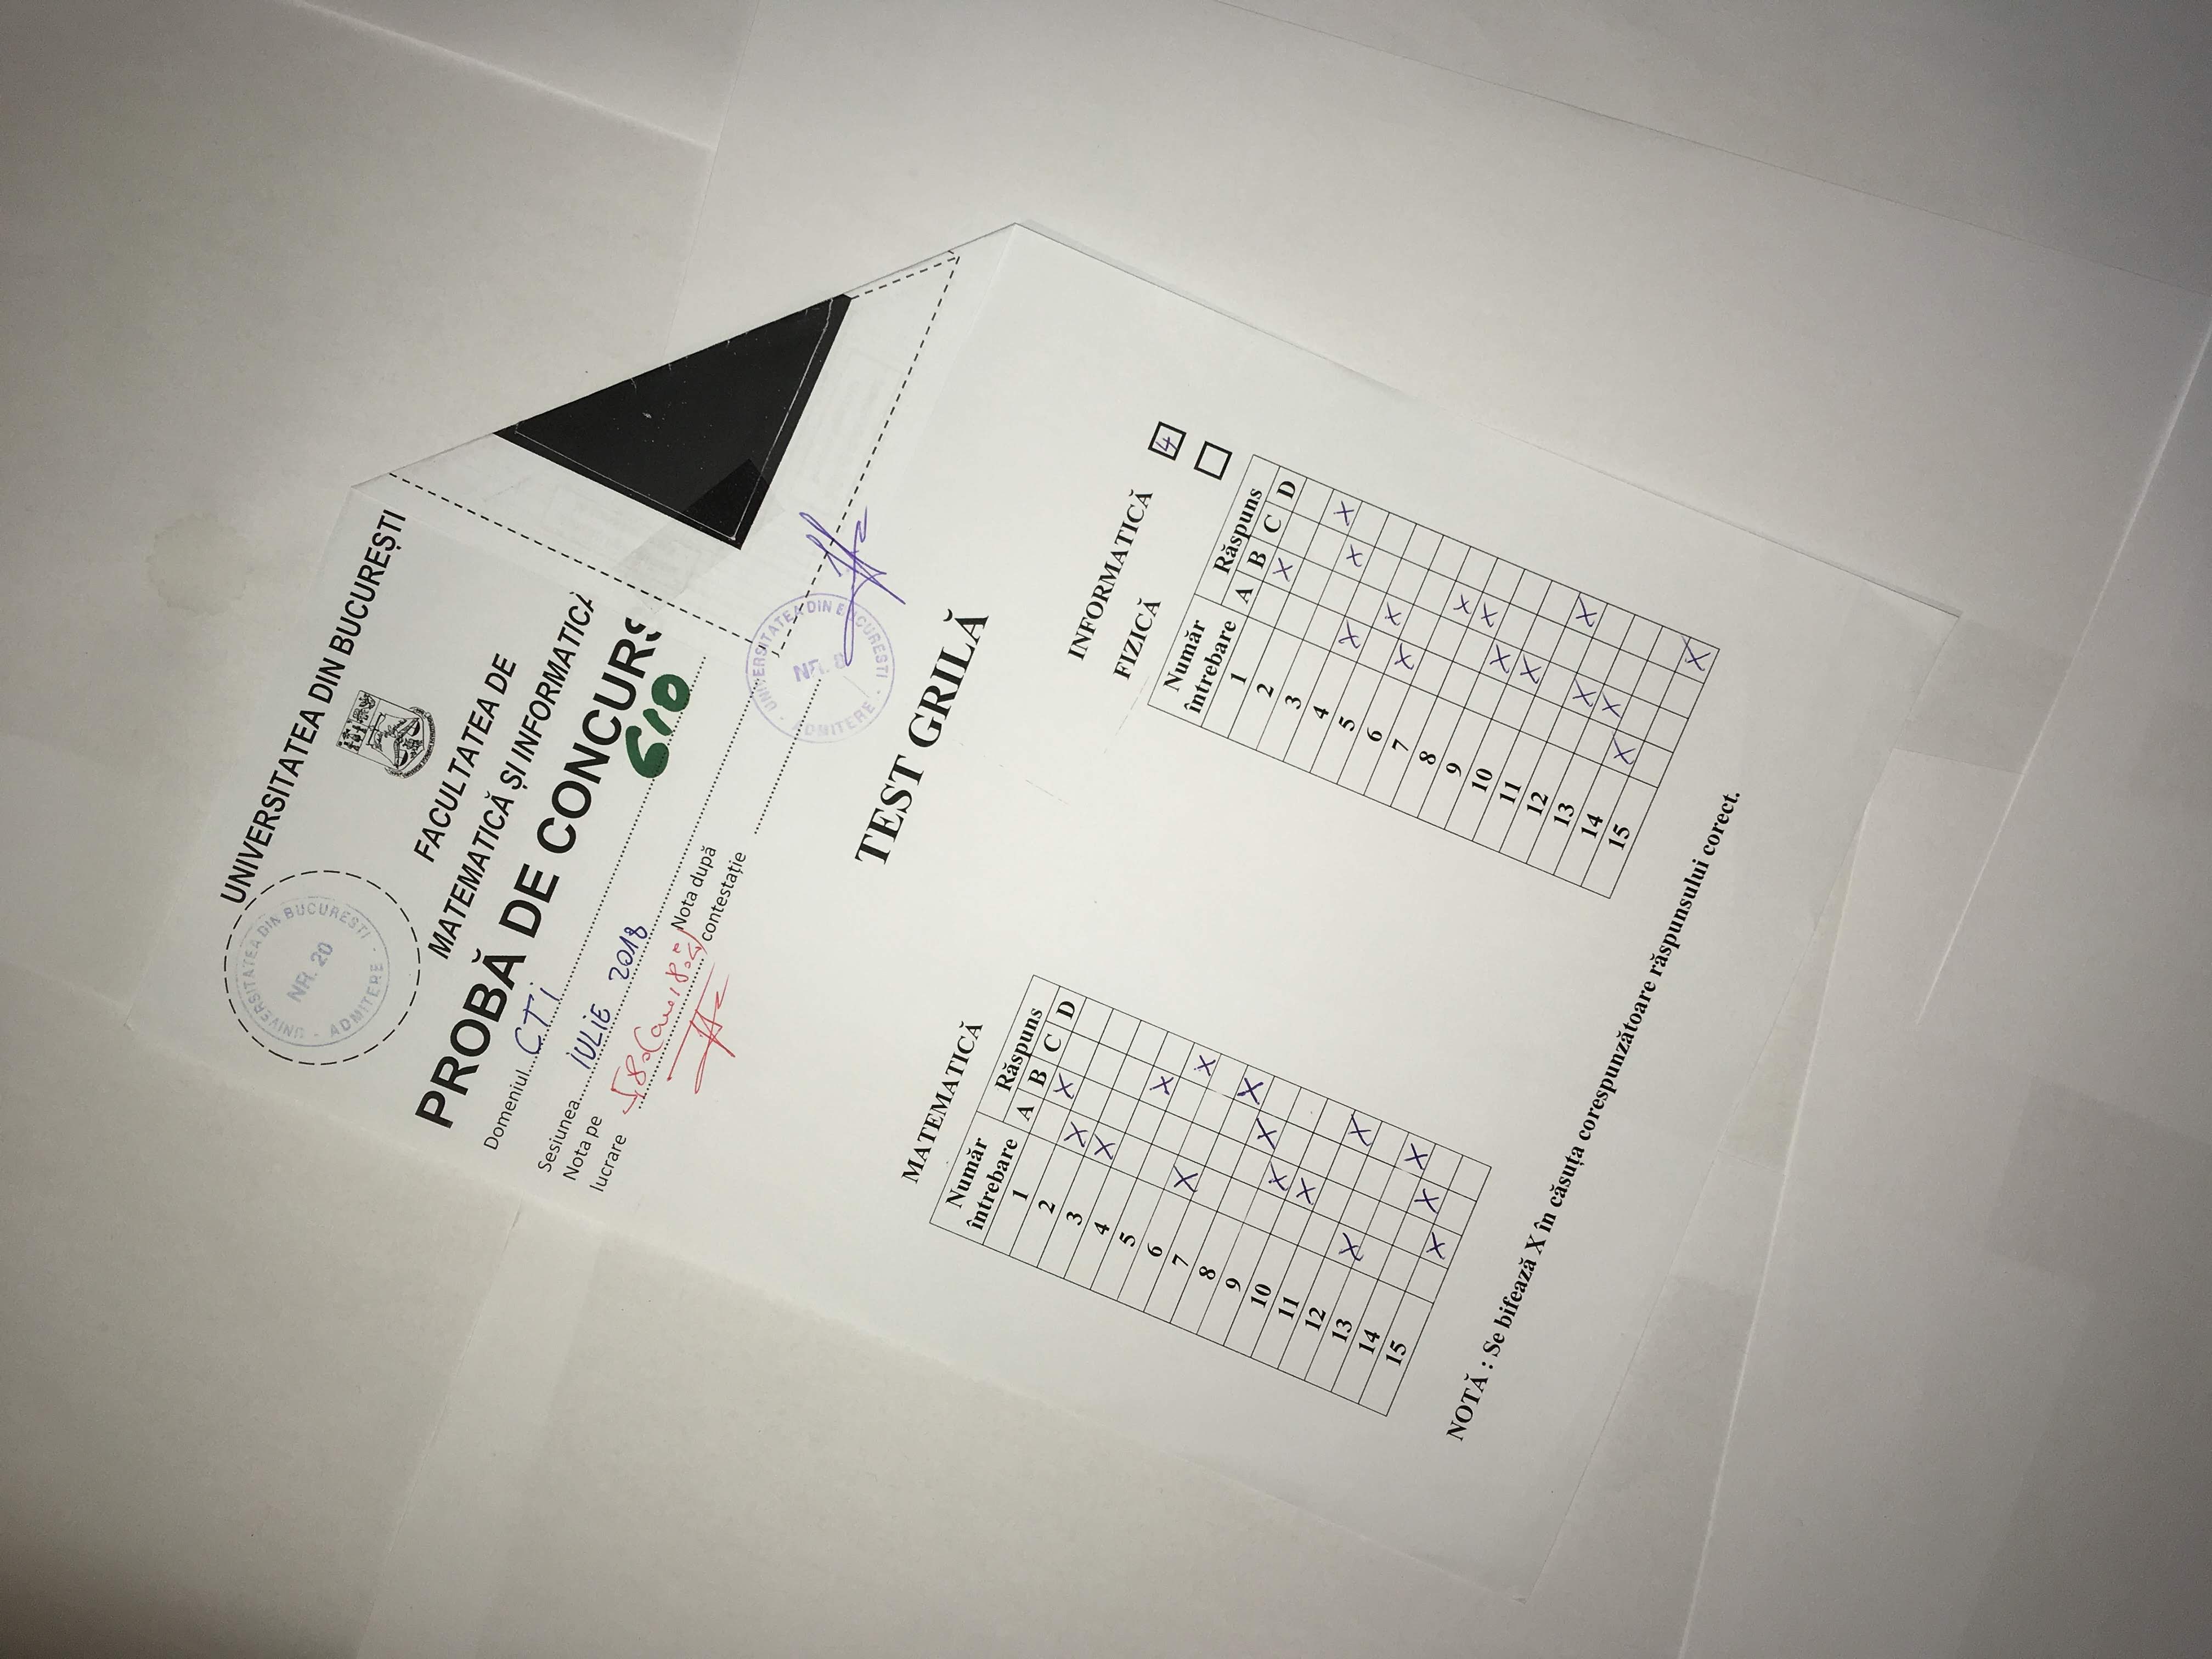 UNIVERSITATEA DIN BUCUREȘTI
UNIVERSITATEA DIN BUCUREȘTI
ADMITERE
NR. 20
FACULTATEA DE
MATEMATICĂ ȘI INFORMATICĂ
PROBĂ DE CONCURS
Domeniul CTi
610
Sesiunea iULiE 2018
Nota pe
lucrare
Nota după
contestație
UNIVERSITATEA DIN BUCURESTI
ADMITERE
NR. 8
TEST GRILĂ
MATEMATICĂ
Număr
întrebare
Răspuns
A B C D
1 X
2 X
3 X
4 X
5 X
6 X
7 X
8 X
9 X
10 X
11 X
12 X
13 X
14 X
15 X
INFORMATICĂ 4
FIZICĂ
Număr
întrebare
Răspuns
A B C D
1 X
2 X
3 X
4 X
5 X
6 X
7 X
8 X
9 X
10 X
11 X
12 X
13 X
14 X
15 X
NOTĂ : Se bifează X în căsuța corespunzătoare răspunsului corect.